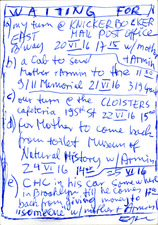 WAITING FOR
a) my turn @ KNICKERBOCKER
EAST MAIL POST OFFICE
B'way 20 VI 16 17 15 w/moth
b) a Cab to send
Mother + Armin to the 11 50
9/11 Memorial 21 VI 16
c) our turn @ the CLOISTERS
cafeteria 22 VI 16 15
d) for Mother to come back
from toilet Museum of
Natural History w/Armin
24 VI 16 14
e) CHC in his car
Brooklyn till he
back from giving money to
someone w/mother + Armin